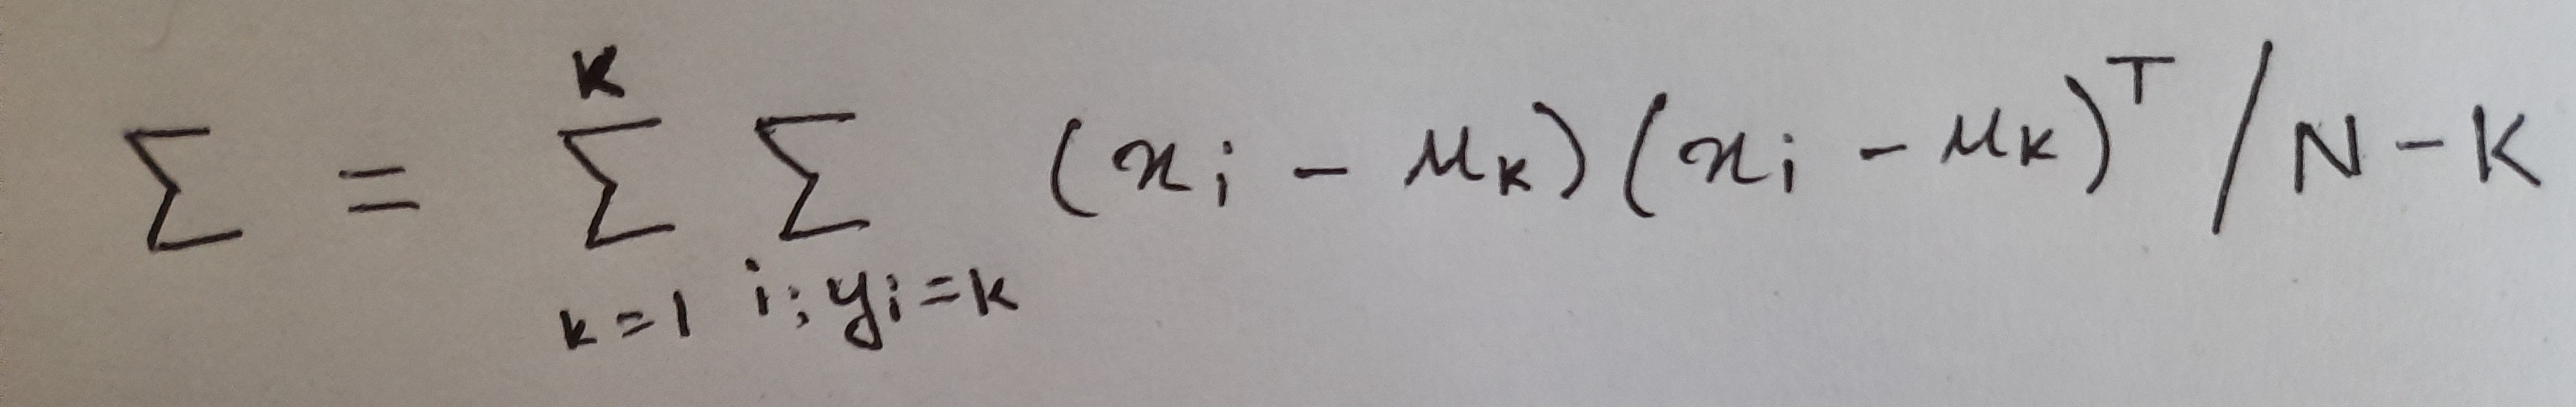 Σ = Σ_{k=1}^{K} Σ_{i; y_i=k} (x_i - μ_k)(x_i - μ_k)^T / N-K